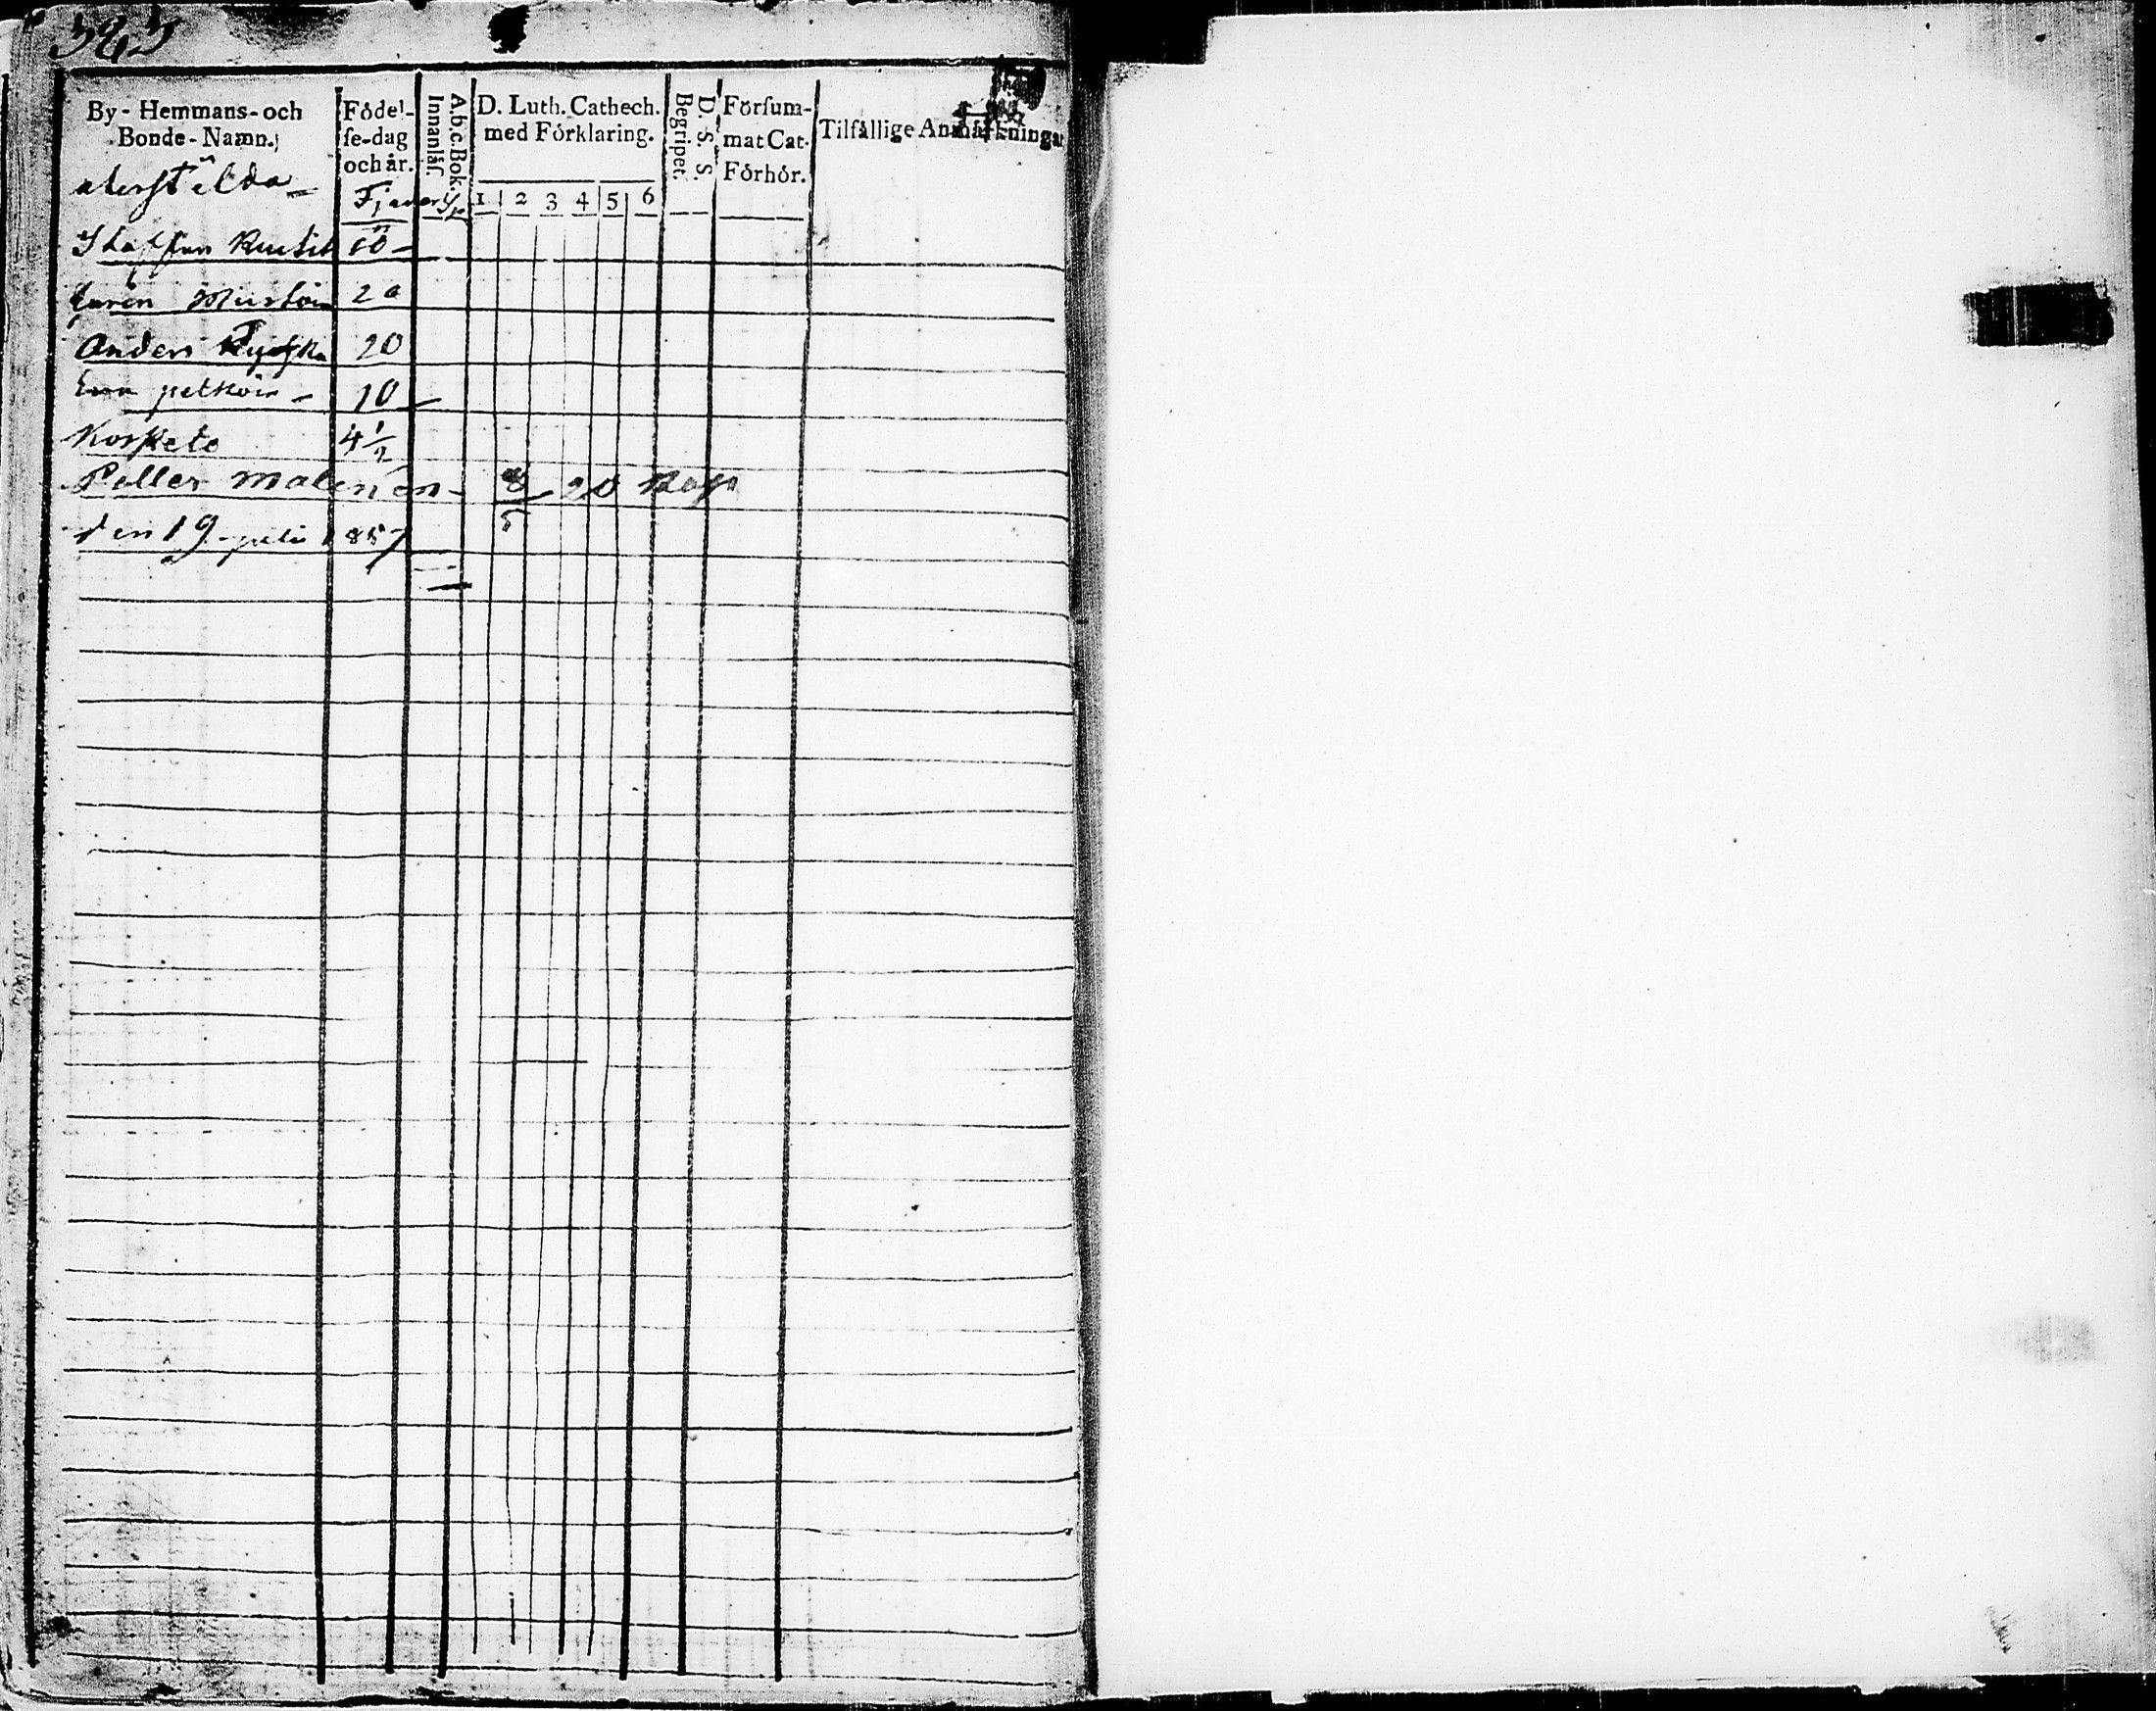 383
By-Hemmans-och
Bonde-Namn.
Födel-
se-dag
och år.
A.b.c. Bok.
Innanläs.
D. Luth. Cathech.
med Förklaring.
1 2 3 4 5 6
D. S. S.
Begripet.
Försum-
mat Cat.
Förhör.
Tilfällige Anmärkningar
aterstälda
Staffan 10
20
Anders 20
Ewa petkoin 10
Koskelo 4 1/2
Peller Malenen 8 20
den 19 juli 1857